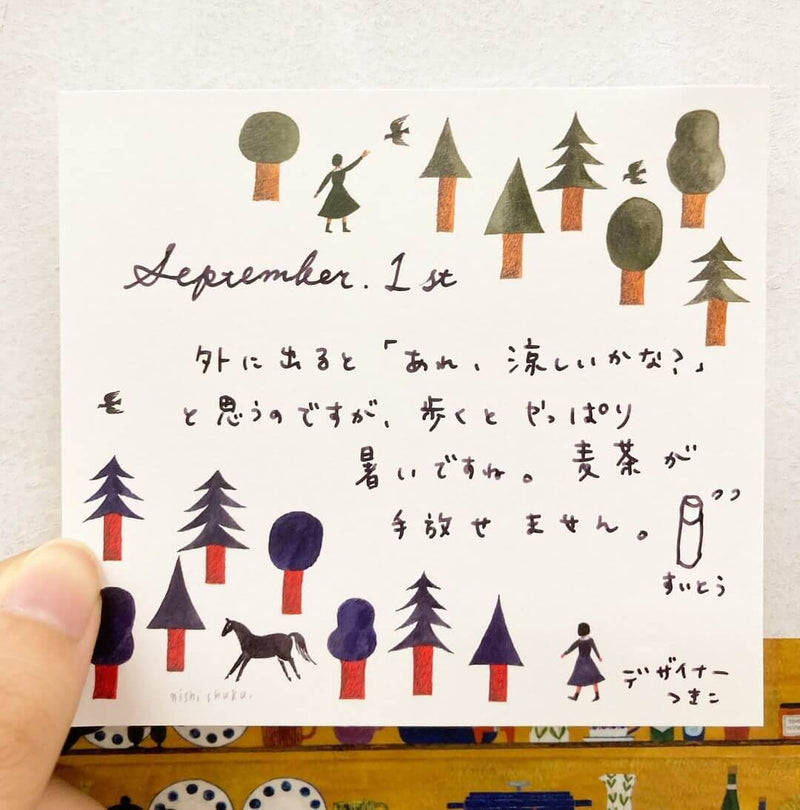 September. 1st
外に出ると「あれ、涼しいかな?」
と思うのですが、歩くとやっぱり
暑いですね。麦茶が
手放せません。
すいとう
デザイナー
つきこ
nishi shuku.